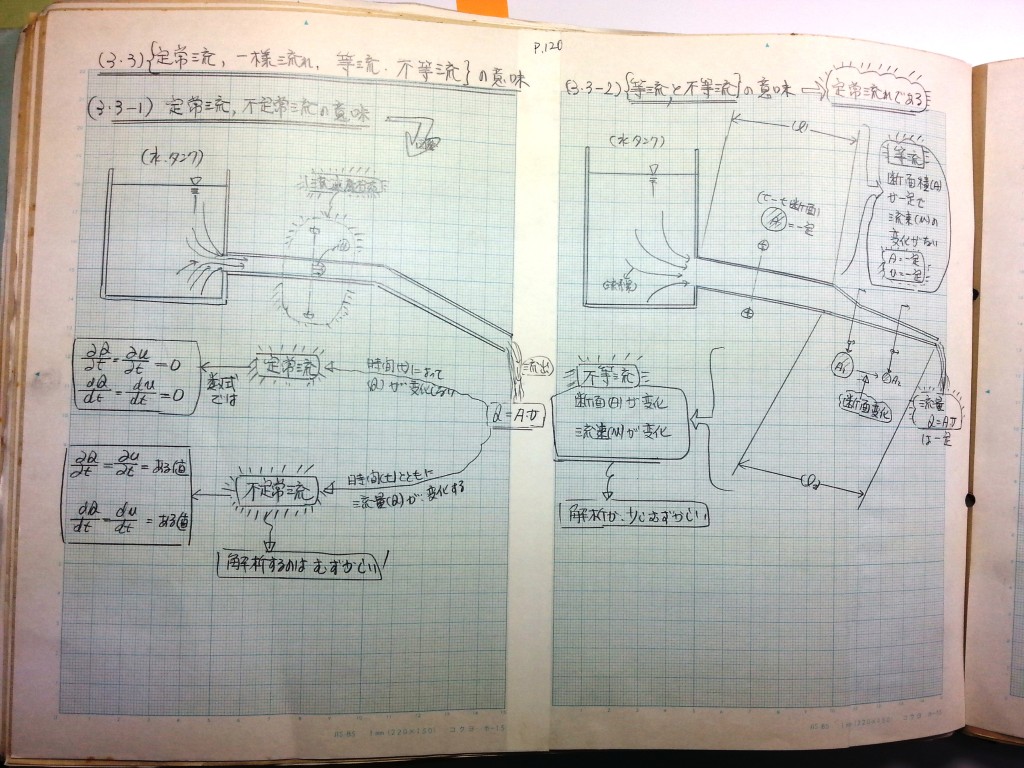 P.120
(3.3){定常流, 一様流れ, 等流・不等流}の意味
(3.3-1) 定常流, 不定常流の意味
(水タンク)
流出
Q=Aυ
時間(t)によって
(Q)が変化しない
定常流
数式
では
∂Q/∂t=∂u/∂t=0
dQ/dt=du/dt=0
時間(t)とともに
流量(Q)が、変化する
不定常流
∂Q/∂t=∂u/∂t=ある値
dQ/dt=du/dt=ある値
解析するのはむずかしい!
(3.3-2){等流と不等流}の意味 ⇒ 定常流れである
(水タンク)
(l)
(t-t断面)
A=一定
等流
断面積(A)
が一定で
流速(u)の
変化がない
A=一定
υ=一定
A₁
A₂
断面変化
流量
Q=Aυ
は一定
不等流
断面(A)が変化
流速(u)が変化
解析が、少しむずかしい